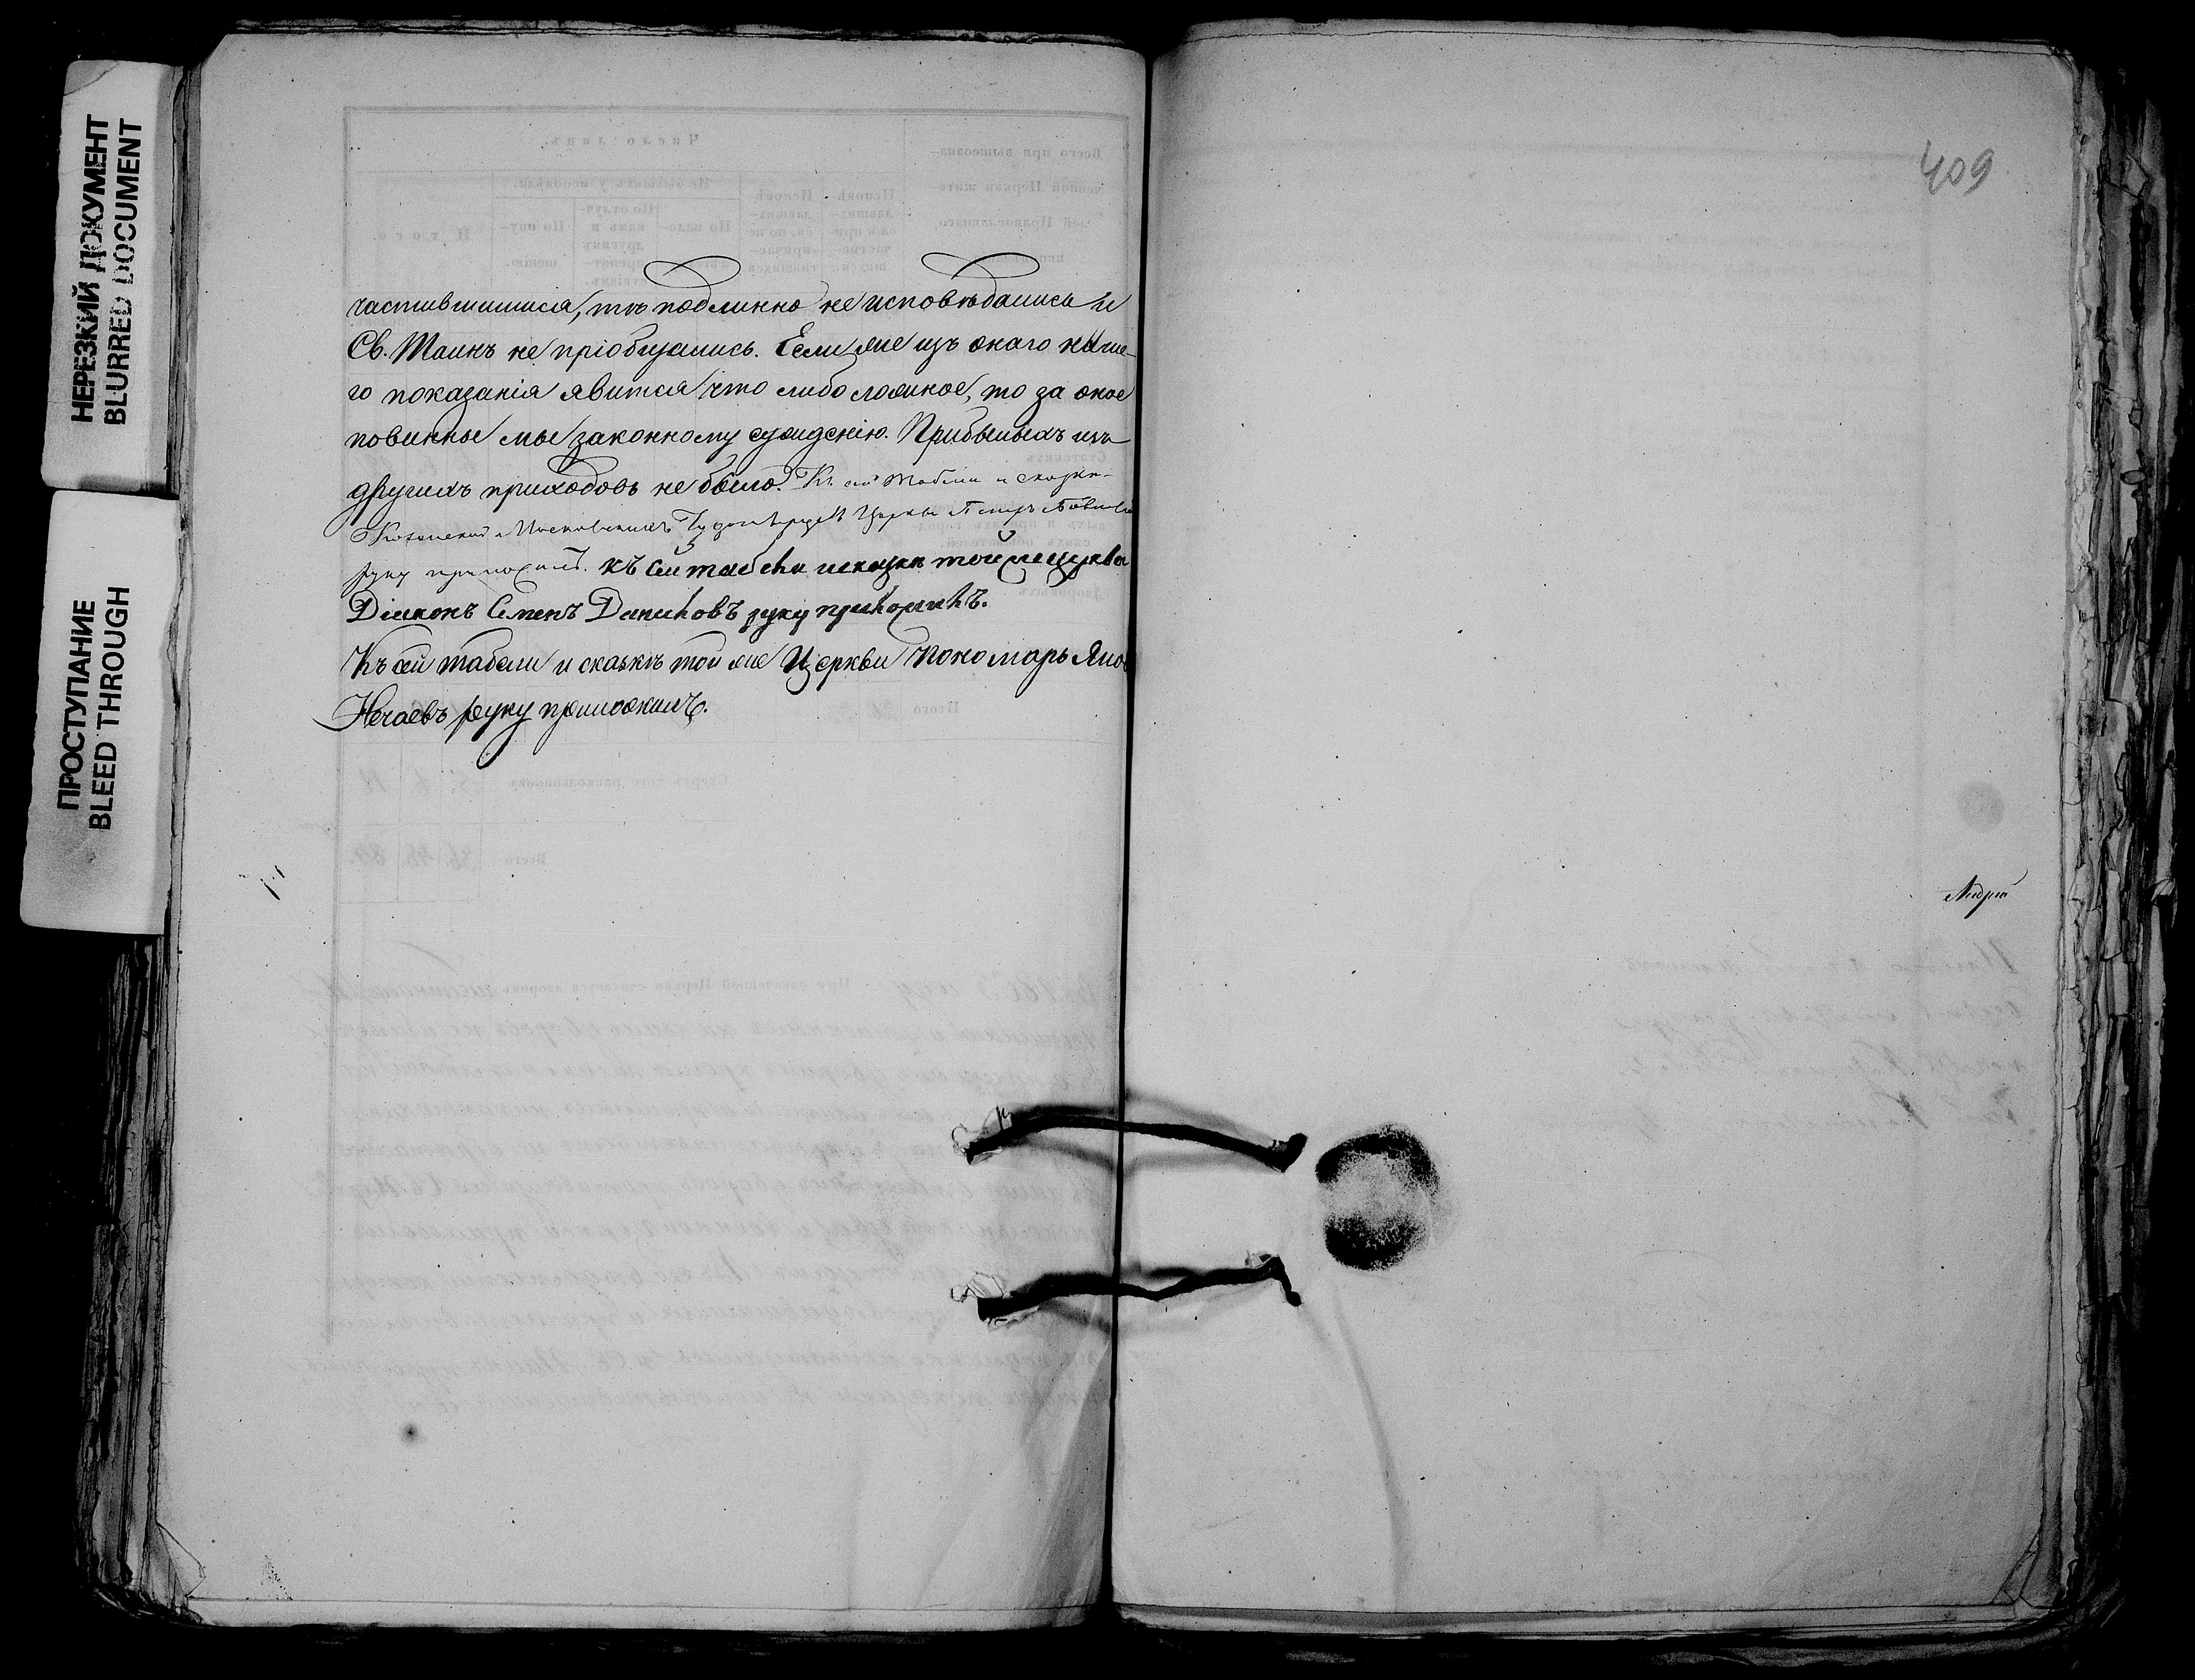 НЕРЕЗКИЙ ДОКУМЕНТ
BLURRED DOCUMENT
ПРОСТУПАНИЕ
BLEED THROUGH
частившимися, тѣ подлинно не исповѣдались и
Св. Таинъ не пріобщались. Если же изъ онаго наше-
го показанія явится что либо ложное, то за оное
повинны мы законному сужденію. Прибылыхъ изъ
другихъ приходовъ не было. Къ сей табели и сказкѣ
Московскихъ Чудотворцевъ Церкви Петръ
руку приложилъ. Къ сей табели и сказкѣ той же церкви
Діаконъ Семенъ Даниловъ руку приложилъ.
Къ сей табели и сказкѣ той же Церкви Пономарь Яков
Нечаевъ руку приложилъ.
409